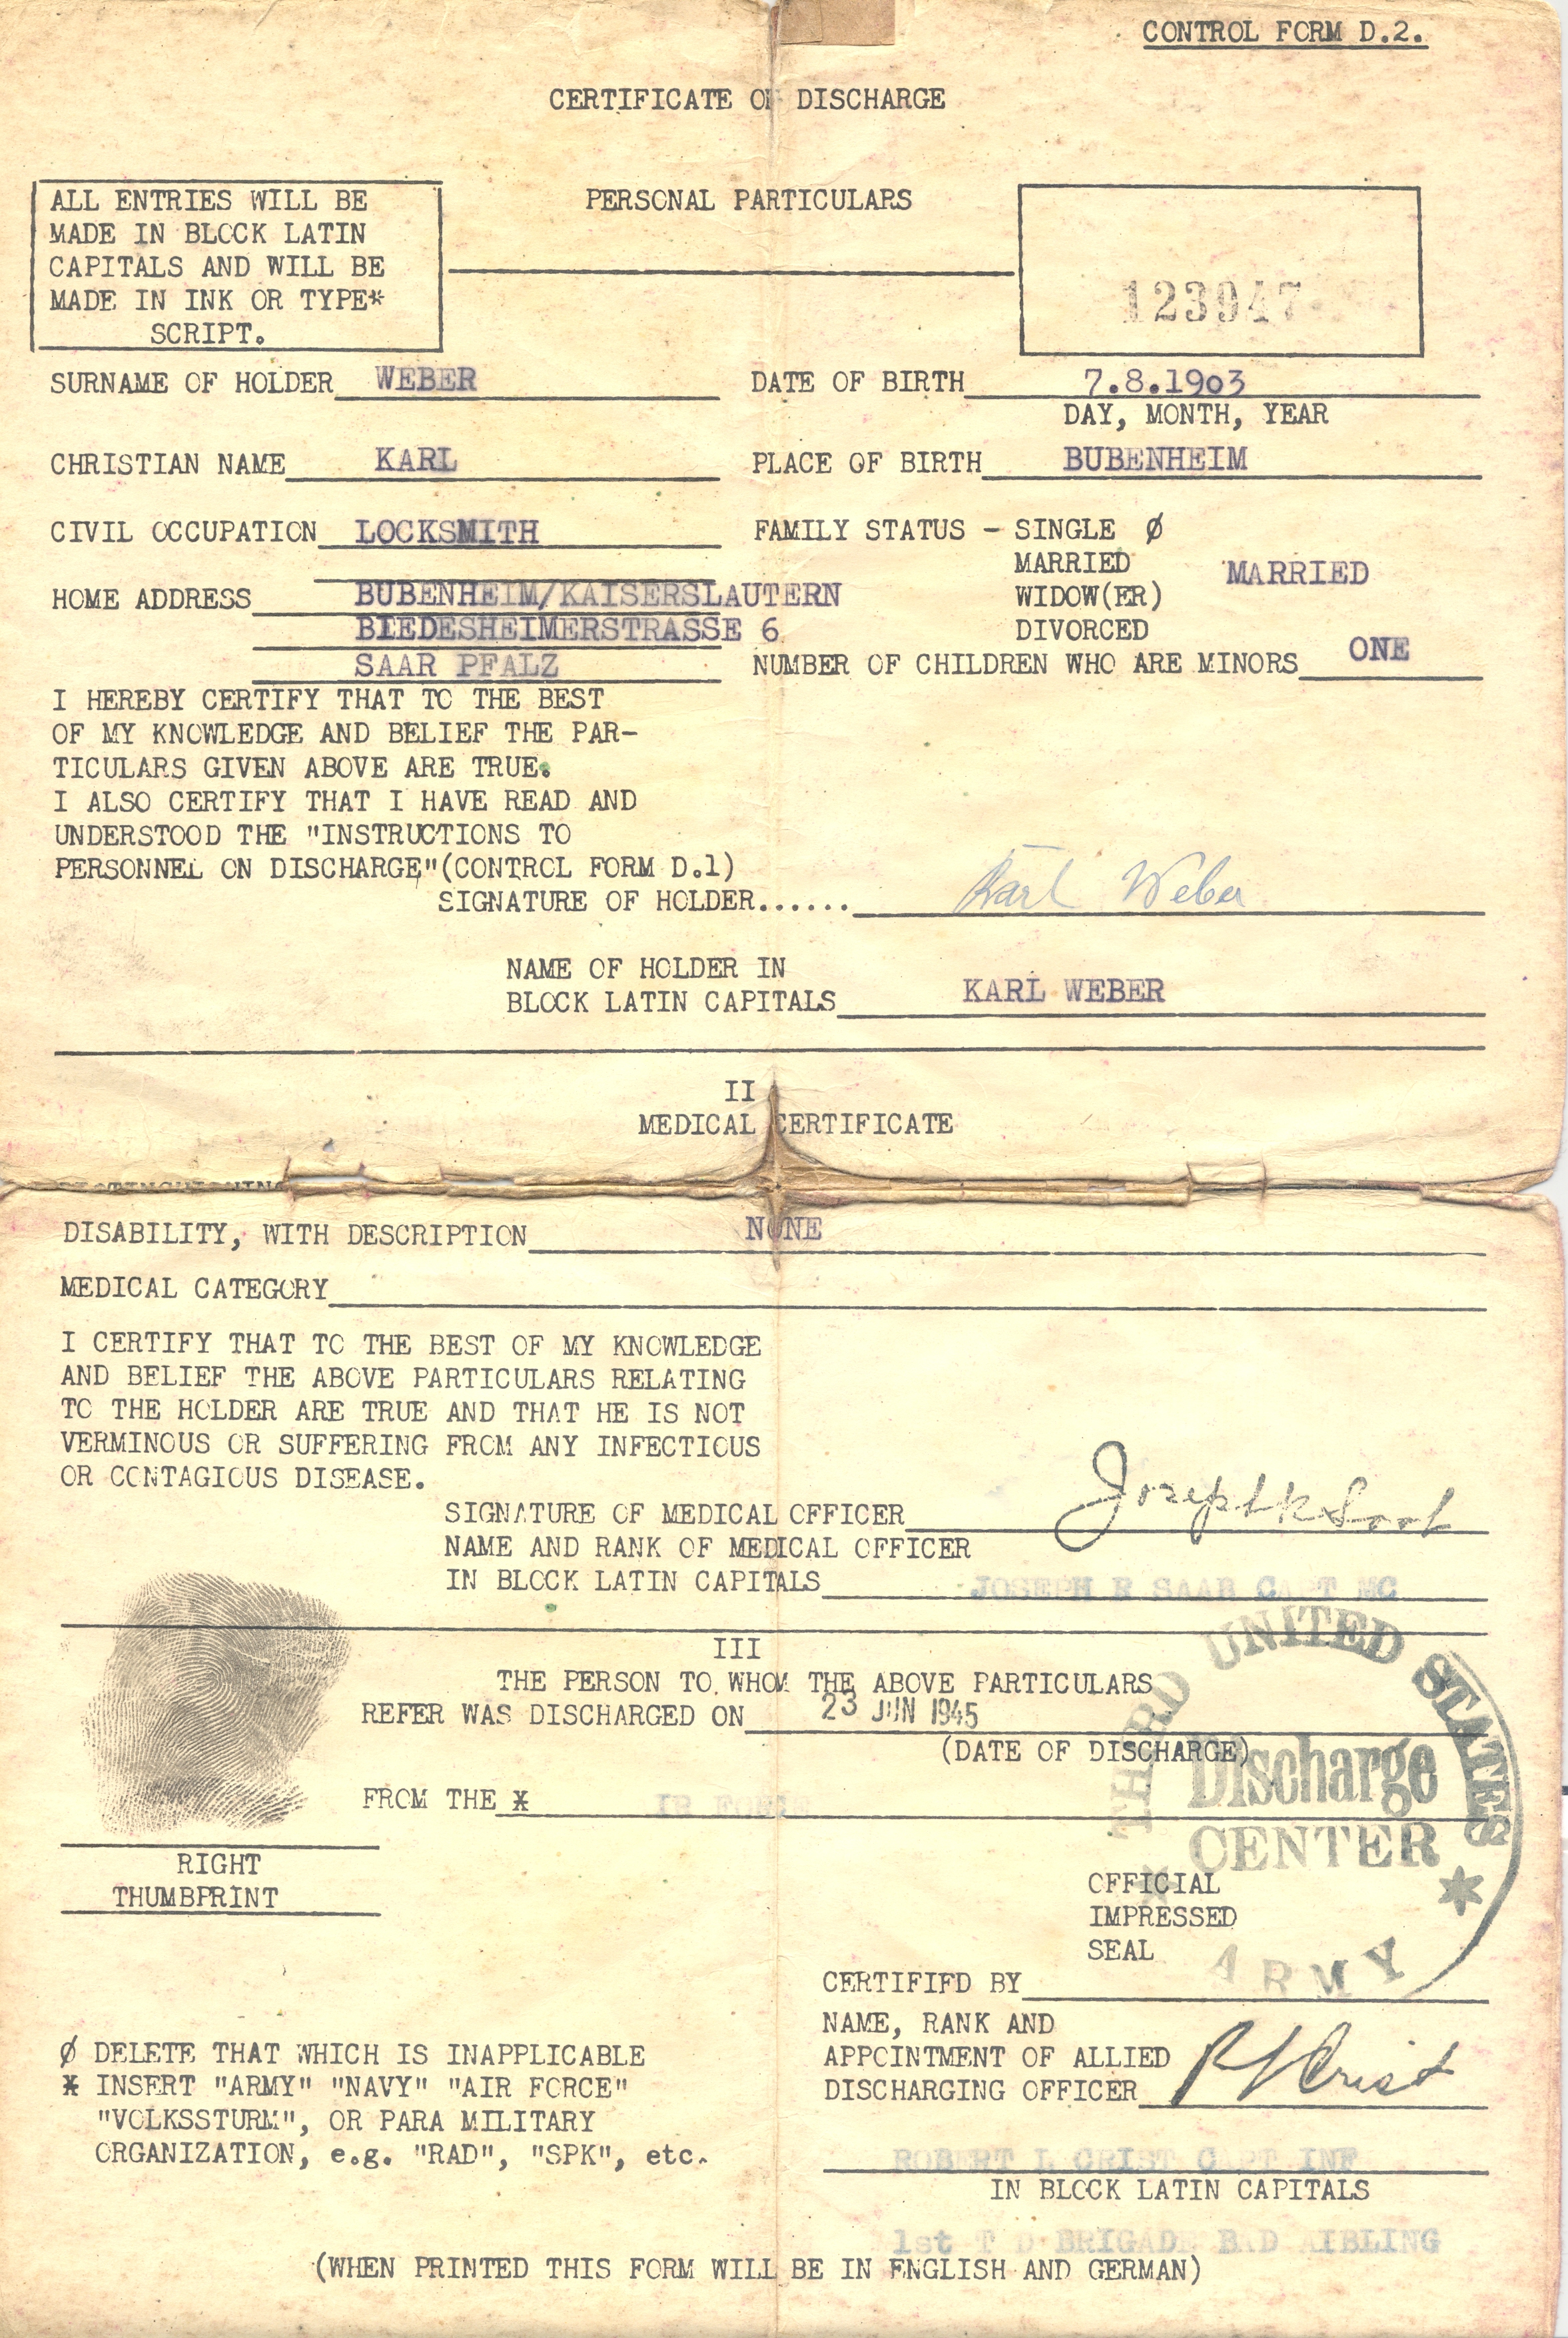 CONTROL FORM D.2.
CERTIFICATE OF DISCHARGE
ALL ENTRIES WILL BE
MADE IN BLOCK LATIN
CAPITALS AND WILL BE
MADE IN INK OR TYPE*
SCRIPT.
PERSONAL PARTICULARS
123947
SURNAME OF HOLDER WEBER DATE OF BIRTH 7.8.1903
DAY, MONTH, YEAR
CHRISTIAN NAME KARL PLACE OF BIRTH BUBENHEIM
CIVIL OCCUPATION LOCKSMITH FAMILY STATUS - SINGLE Ø
MARRIED MARRIED
HOME ADDRESS BUBENHEIM/KAISERSLAUTERN WIDOW(ER)
BIEDESHEIMERSTRASSE 6 DIVORCED
SAAR PFALZ NUMBER OF CHILDREN WHO ARE MINORS ONE
I HEREBY CERTIFY THAT TO THE BEST
OF MY KNOWLEDGE AND BELIEF THE PAR-
TICULARS GIVEN ABOVE ARE TRUE.
I ALSO CERTIFY THAT I HAVE READ AND
UNDERSTOOD THE "INSTRUCTIONS TO
PERSONNEL ON DISCHARGE"(CONTROL FORM D.1)
SIGNATURE OF HOLDER...... Karl Weber
NAME OF HOLDER IN
BLOCK LATIN CAPITALS KARL WEBER
II
MEDICAL CERTIFICATE
DISABILITY, WITH DESCRIPTION NONE
MEDICAL CATEGORY
I CERTIFY THAT TO THE BEST OF MY KNOWLEDGE
AND BELIEF THE ABOVE PARTICULARS RELATING
TO THE HOLDER ARE TRUE AND THAT HE IS NOT
VERMINOUS OR SUFFERING FROM ANY INFECTIOUS
OR CONTAGIOUS DISEASE.
SIGNATURE OF MEDICAL OFFICER Joseph
NAME AND RANK OF MEDICAL OFFICER
IN BLOCK LATIN CAPITALS JOSEPH R SAAB CAPT MC
III
THE PERSON TO WHOM THE ABOVE PARTICULARS
REFER WAS DISCHARGED ON 23 JUN 1945
(DATE OF DISCHARGE)
FROM THE *
THIRD UNITED STATES
Discharge
CENTER
ARMY
RIGHT
THUMBPRINT
OFFICIAL
IMPRESSED
SEAL
CERTIFIFD BY
NAME, RANK AND
APPOINTMENT OF ALLIED
DISCHARGING OFFICER R L Crist
Ø DELETE THAT WHICH IS INAPPLICABLE
* INSERT "ARMY" "NAVY" "AIR FORCE"
"VOLKSSTURM", OR PARA MILITARY
ORGANIZATION, e.g. "RAD", "SPK", etc.
ROBERT L CRIST CAPT INF
IN BLOCK LATIN CAPITALS
1st T D BRIGADE BAD AIBLING
(WHEN PRINTED THIS FORM WILL BE IN ENGLISH AND GERMAN)